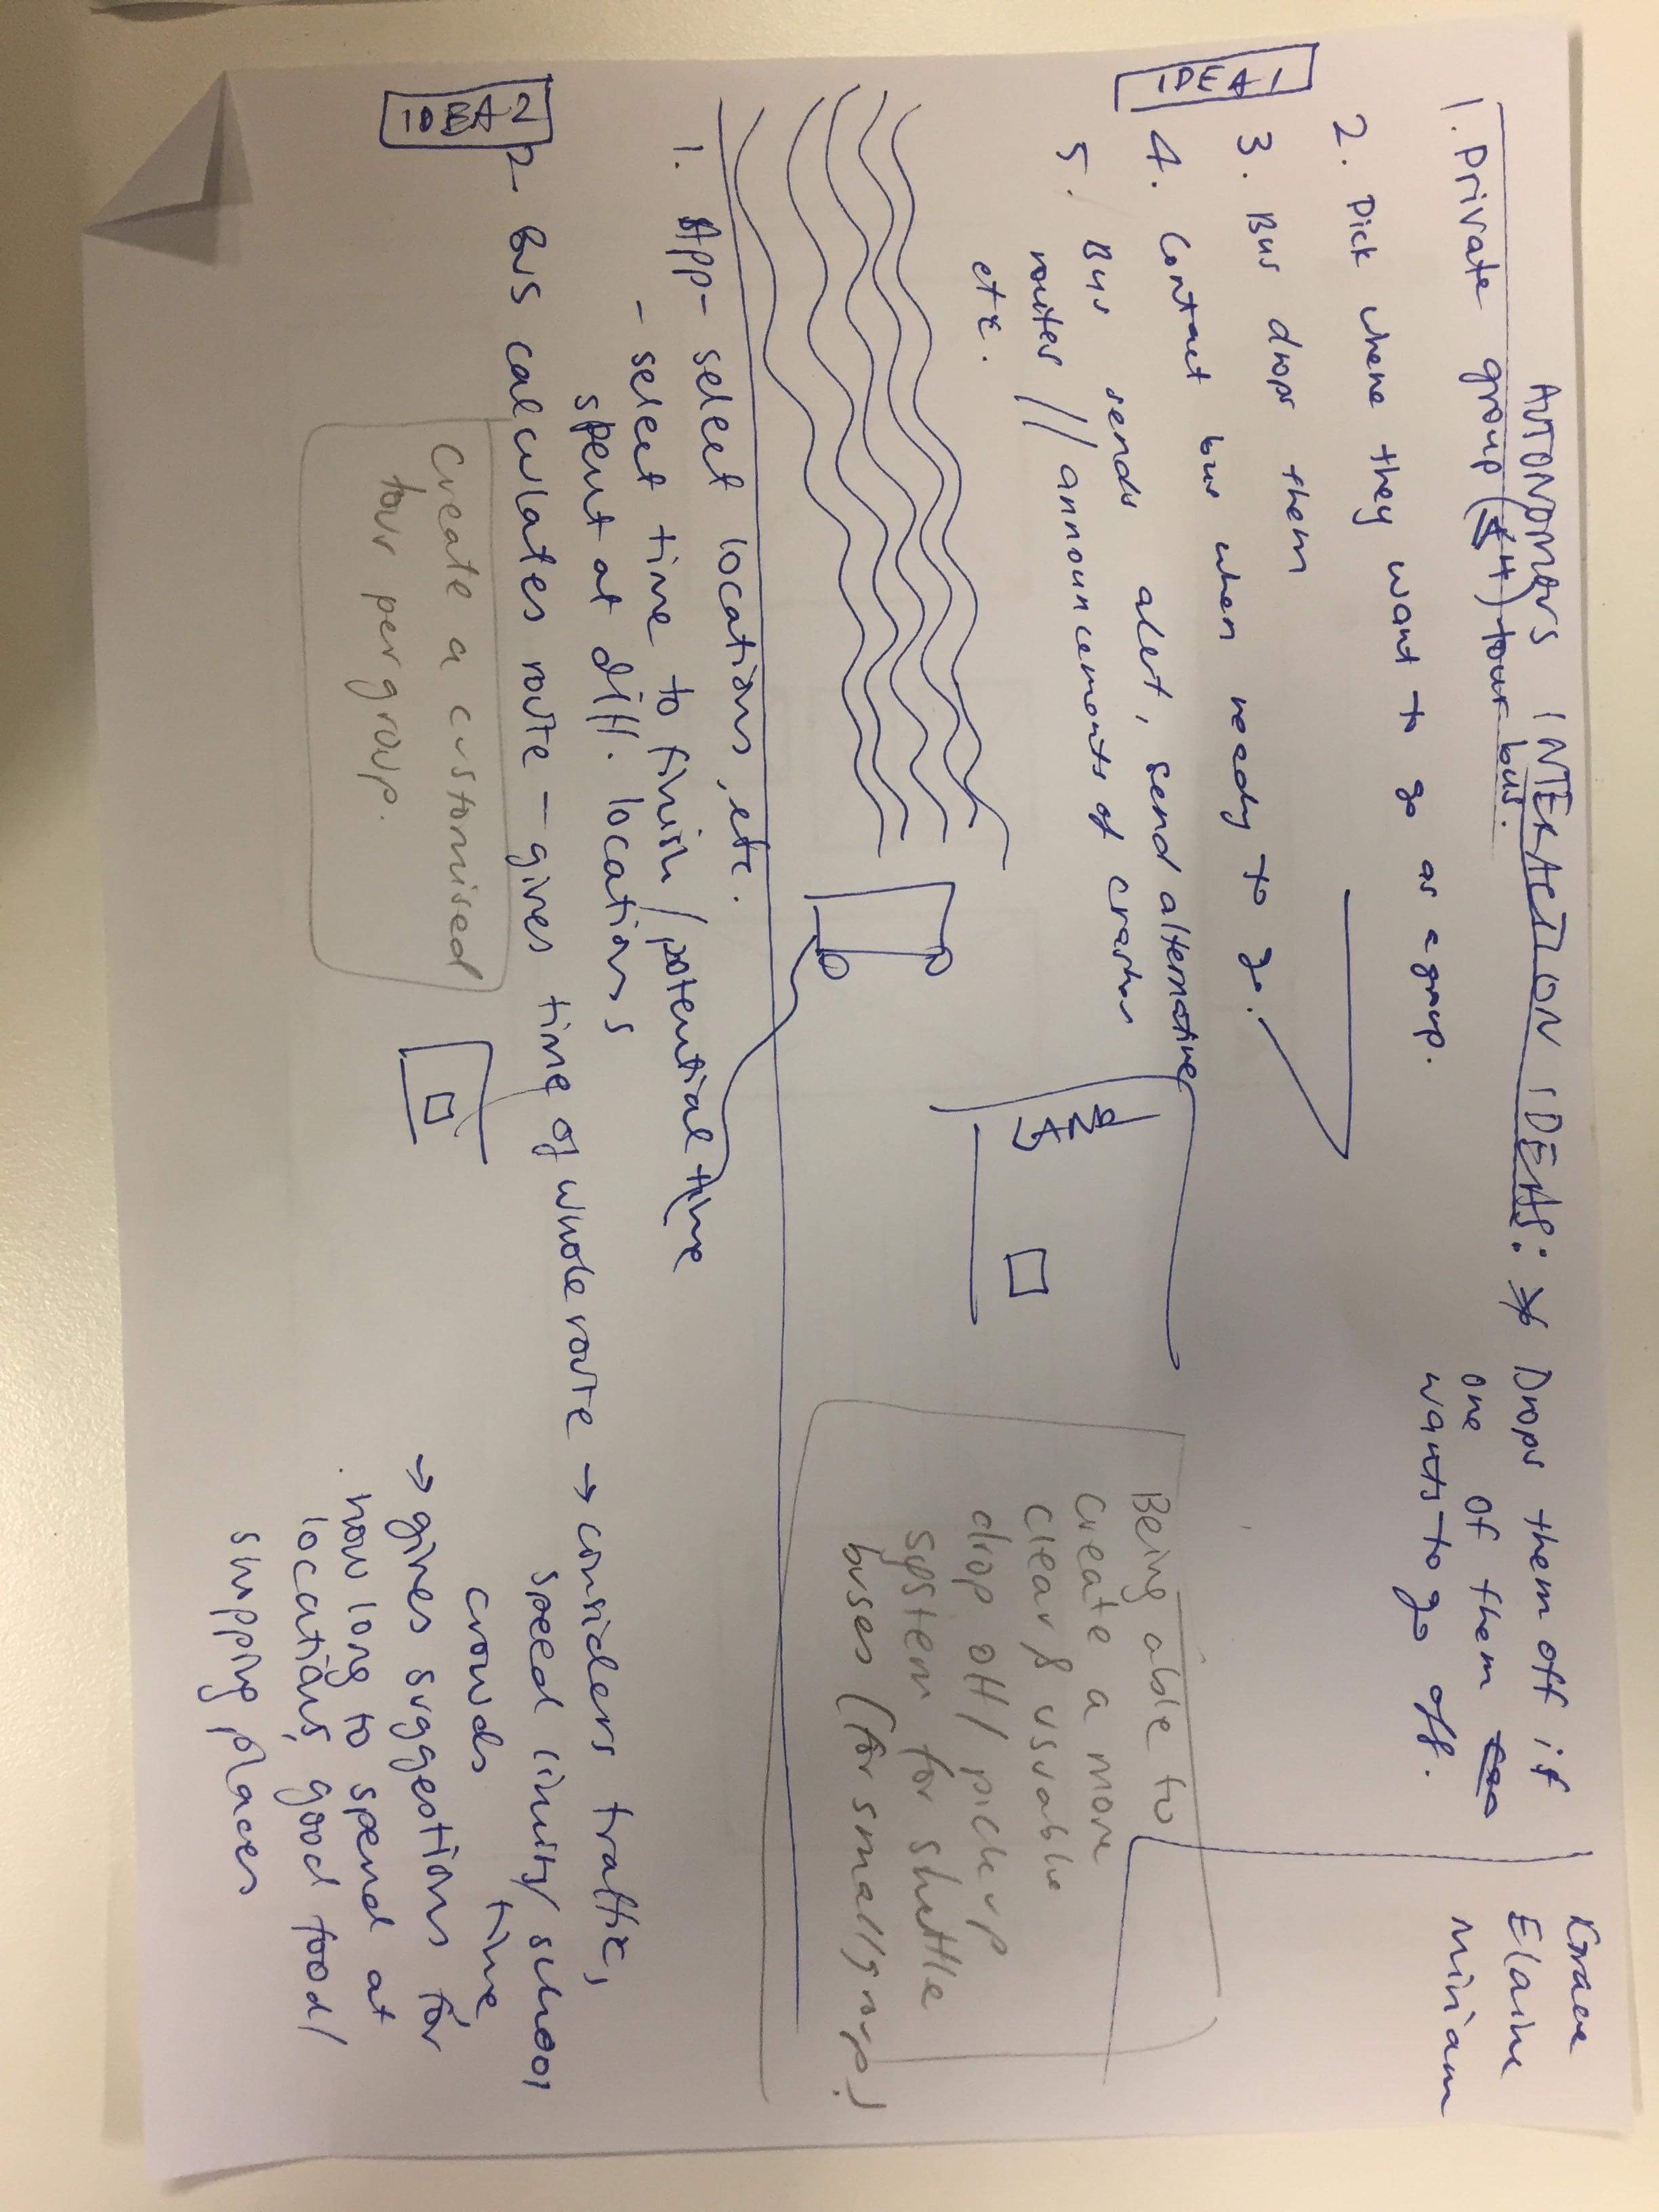 AUTONOMOUS INTERACTION IDEAS:
Drops them off if
one of them
wants to go off.
Grace
Elaine
Miriam
IDEA 1
1. Private group (4) tour bus.
2. Pick where they want to go as a group.
3. Bus drops them
4. Contact bus when ready to go.
5. Bus sends alert, send alternative
routes // announcements of crashes
etc.
Being able to
create a more
clear & usuable
drop off / pick up
system for shuttle
buses (for small group)
IDEA 2
1. App - select locations, etc.
- select time to finish / potential time
spent at diff. locations
2. Bus calculates route - gives time of whole route → considers traffic,
speed limits/ school
time
crowds
→ gives suggestions for
how long to spend at
locations, good food/
shopping places
Create a customised
tour per group.